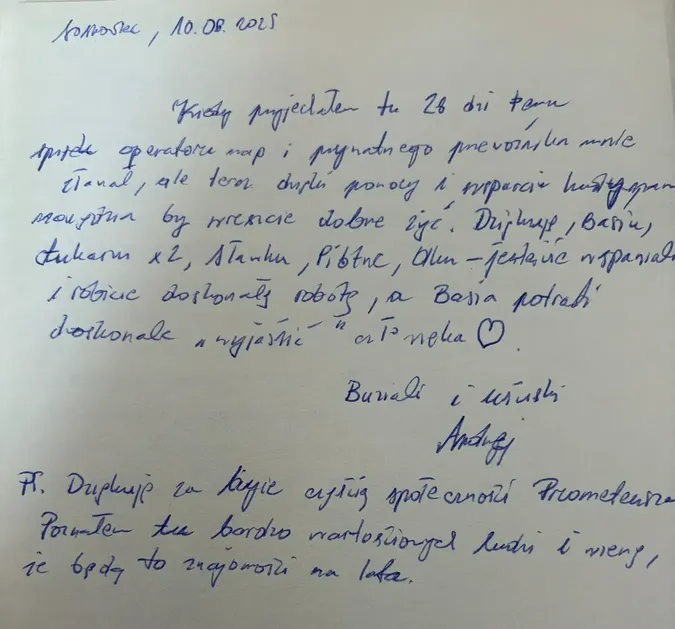 , 10.08.2025
Kiedy przyjechałem tu 28 dni temu
operatora nap i prywatnego przewoźnika mnie
złamał, ale teraz dzięki pomocy i wsparciu
by wreszcie dobrze żyć. Dziękuję, Basiu,
Łukaszu x2, Sławku, Piotrze, Olku – jesteście wspaniali
i robicie doskonałą robotę, a Basia potrafi
doskonale „wyjaśnić" człowieka ♡.
Buziaki i uściski
Andrzej
PS. Dziękuję za bycie częścią społeczności Prometeusza
Poznałem tu bardzo wartościowych ludzi i wierzę,
że będą to znajomości na lata.